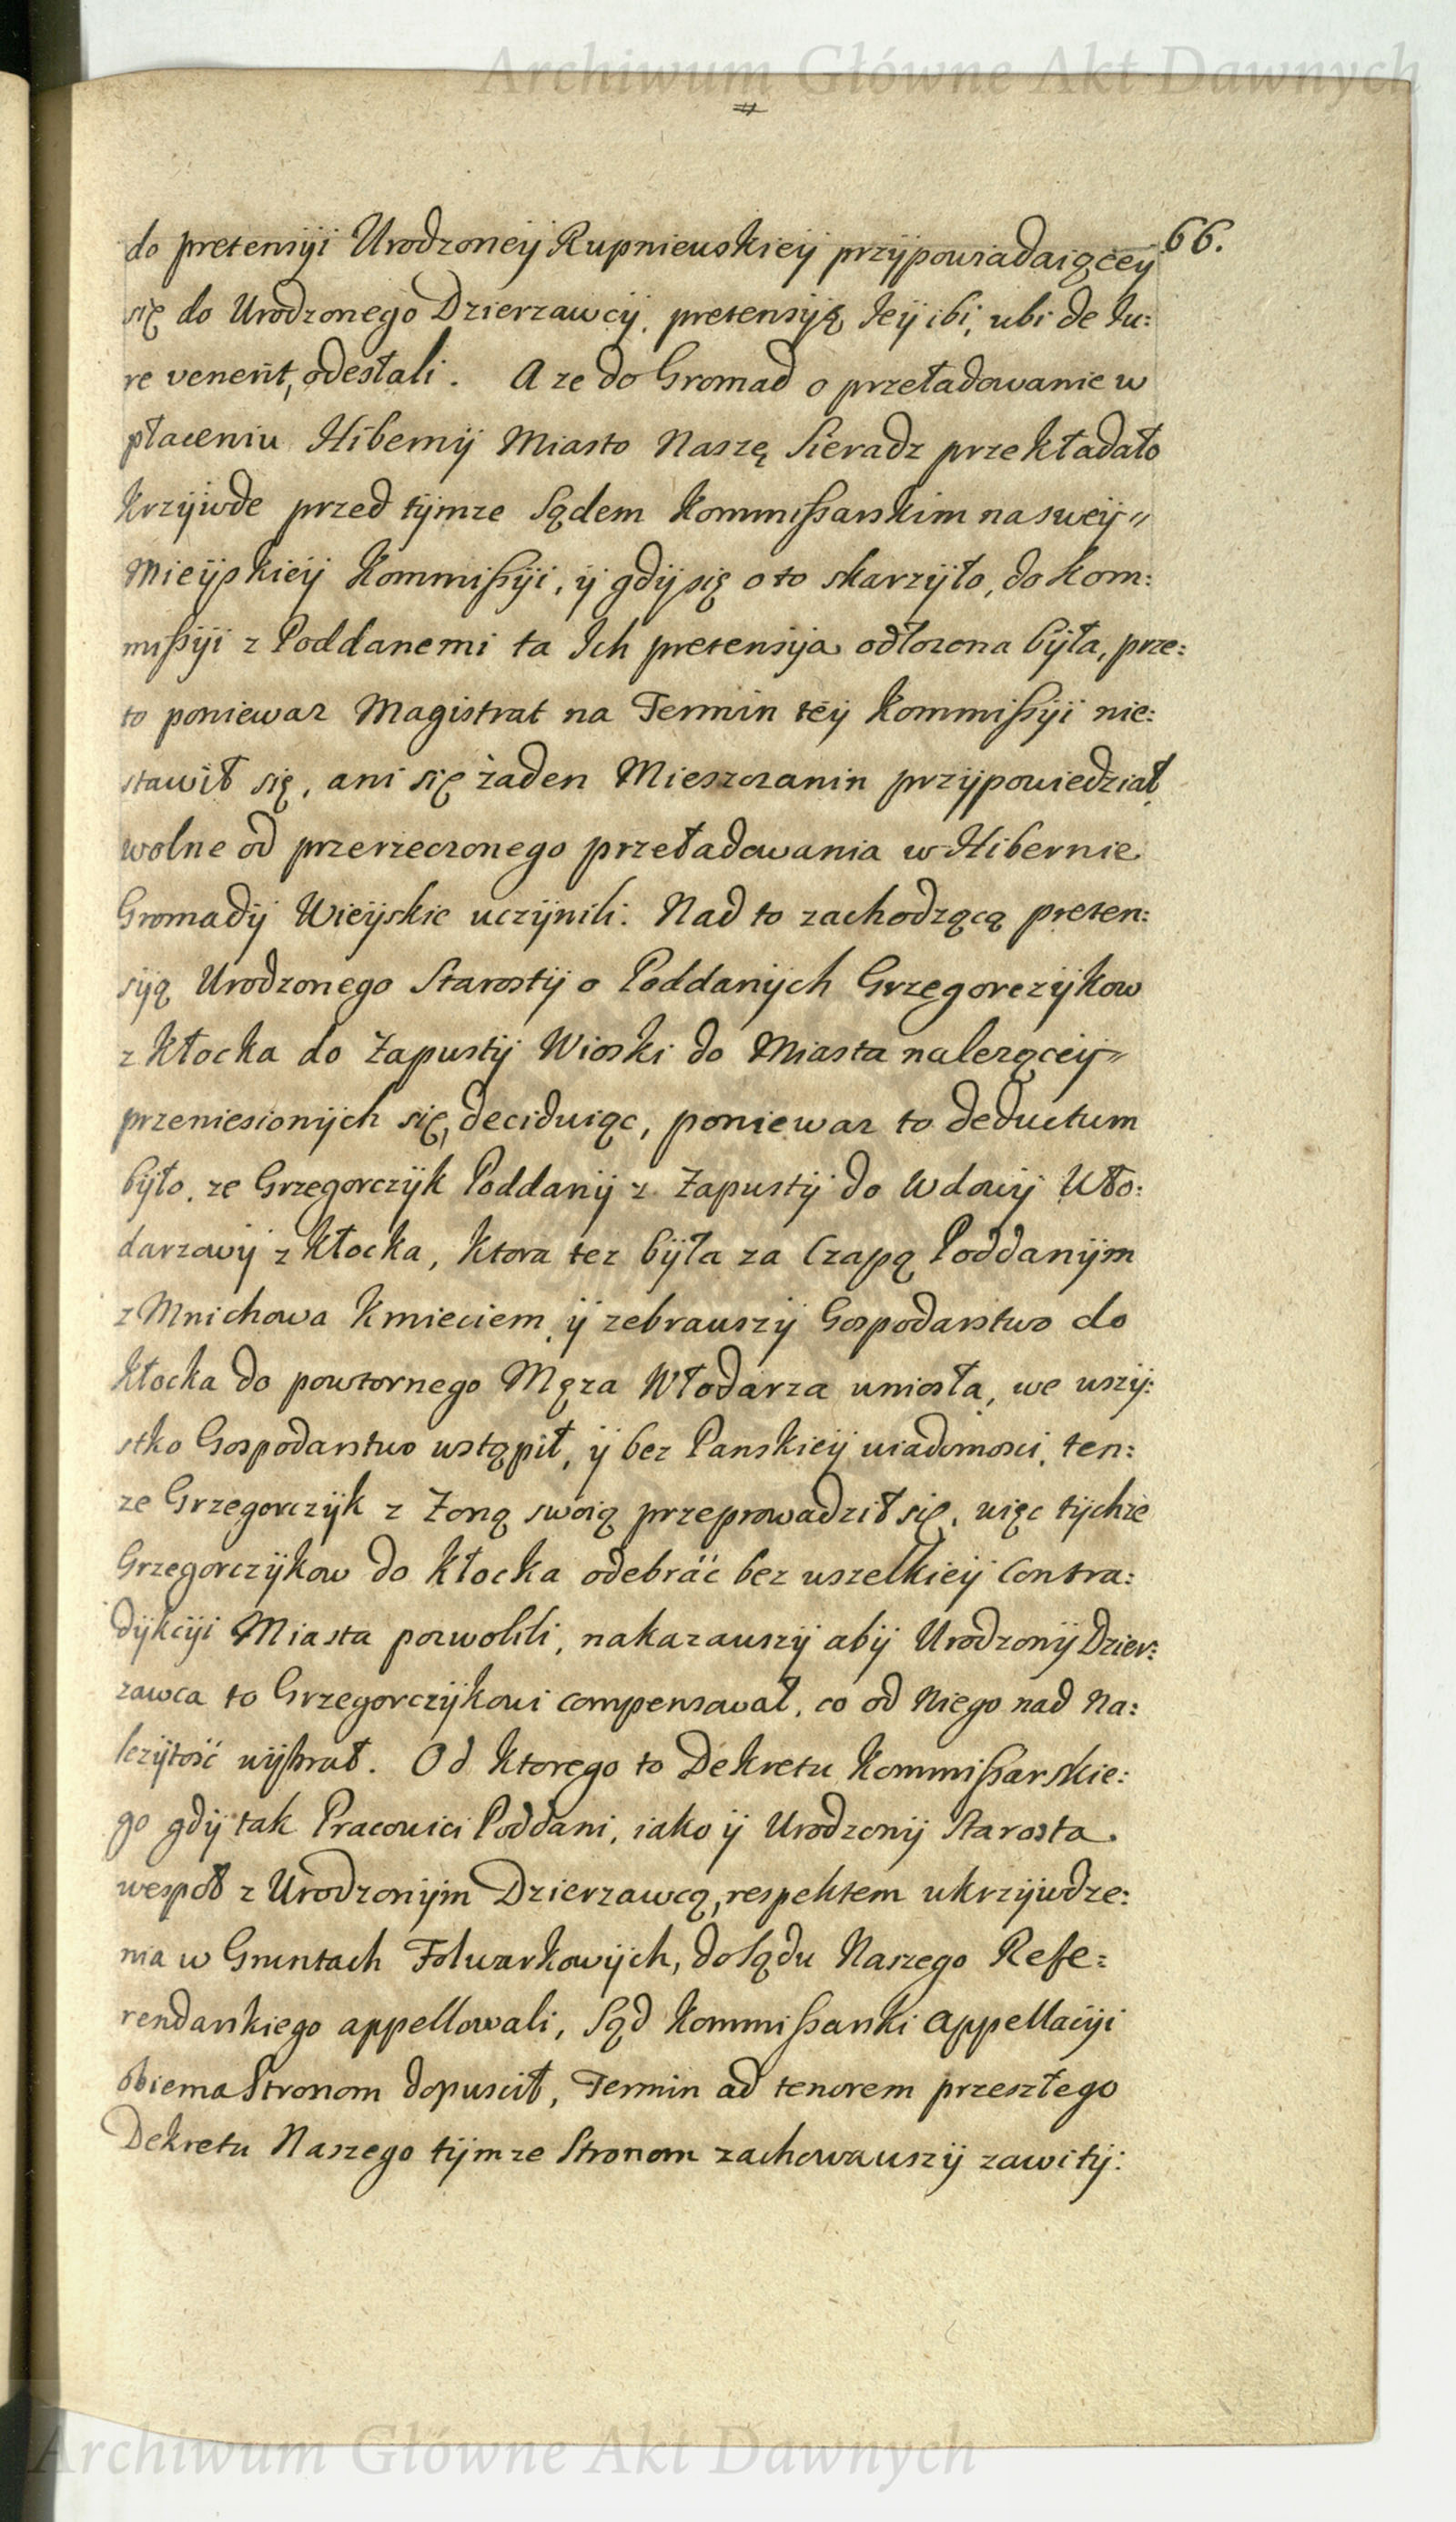 Archiwum Główne Akt Dawnych
66.
do pretensyi Urodzoney Rupniewskiey przypowiadaiącey
się do Urodzonego Dzierzawcy, pretensyą Iey ibi, ubi de Iu:
re venerit, odesłali. A ze do Gromad o przeładowanie w
płaceniu Hiberny Miasto Naszę Sieradz przekładało
krzywde przed tymze Sądem Kommissarskim na swey
Mieyskiey Kommissyi, y gdy się o to skarzyło, do Kom:
missyi z Poddanemi ta Ich pretensya odłozona była, prze:
to poniewaz Magistrat na Termin tey Kommissyi nie:
stawił się, ani się żaden Mieszczanin przypowiedział,
wolne od przerzeczonego przeładowania w Hibernie
Gromady Wieyskie uczynili. Nad to zachodzącą preten:
syą Urodzonego Starosty o Poddanych Grzegorczykow
z Kłocka do Zapusty Wioski do Miasta nalezącey
przeniesionych się, deciduiąc, poniewaz to deductum
było, ze Grzegorczyk Poddany z Zapusty do Wdowy Wło:
darzowy z Kłocka, ktora tez była za Czapą Poddanym
z Mnichowa Kmieciem, y zebrawszy Gospodarstwo do
Kłocka do powtornego Męza Włodarza uniosła, we wszy:
stko Gospodarstwo wstąpił, y bez Panskiey wiadomosci, ten:
ze Grzegorczyk z Zoną swoią przeprowadził się, więc tychże
Grzegorczykow do Kłocka odebrać bez wszelkiey Contra:
dykcyi Miasta pozwolili, nakazawszy aby Urodzony Dzier:
zawca to Grzegorczykowi compensował, co od Niego nad Na:
lezytość wybrał. Od ktorego to Dekretu Kommissarskie:
go gdy tak Pracowici Poddani, iako y Urodzony Starosta
wespoł z Urodzonym Dzierzawcą, respektem ukrzywdze:
nia w Gruntach Folwarkowych, do Sądu Naszego Refe:
rendarskiego appellowali, Sąd Kommissarski appellacyi
obiema Stronom dopuscił, Termin ad tenorem przeszłego
Dekretu Naszego tymze Stronom zachowawszy zawity:
Archiwum Główne Akt Dawnych